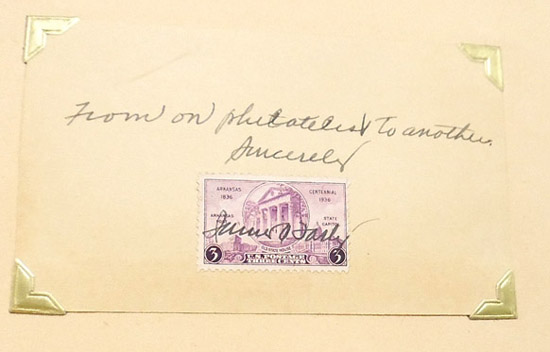 From on philatelist to another.
Sincerely
ARKANSAS CENTENNIAL
1836 1936
ARKANSAS STATE
CAPITOL
James
OLD STATE HOUSE
3 U.S. POSTAGE 3
THREE CENTS